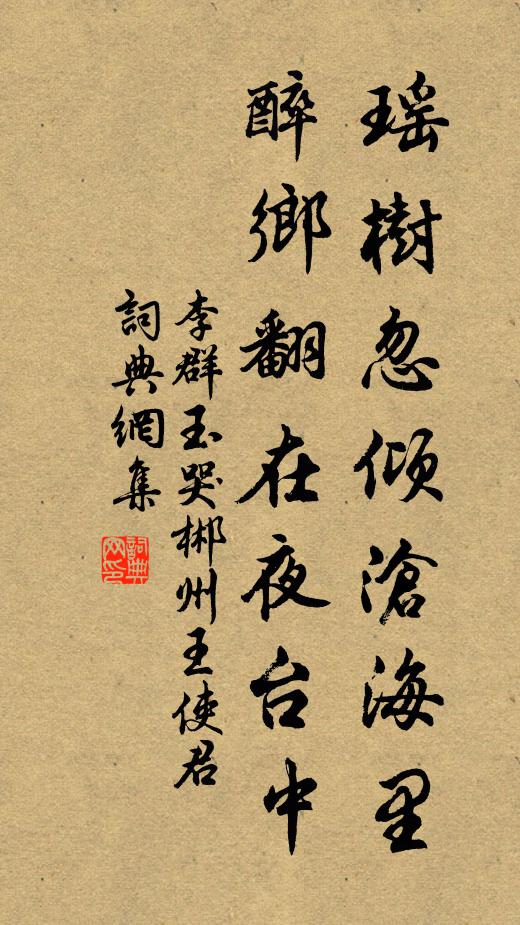 瑶樹忽傾滄海里
醉鄉翻在夜台中
李群玉哭郴州王使君
詞典網集
詞典
网印